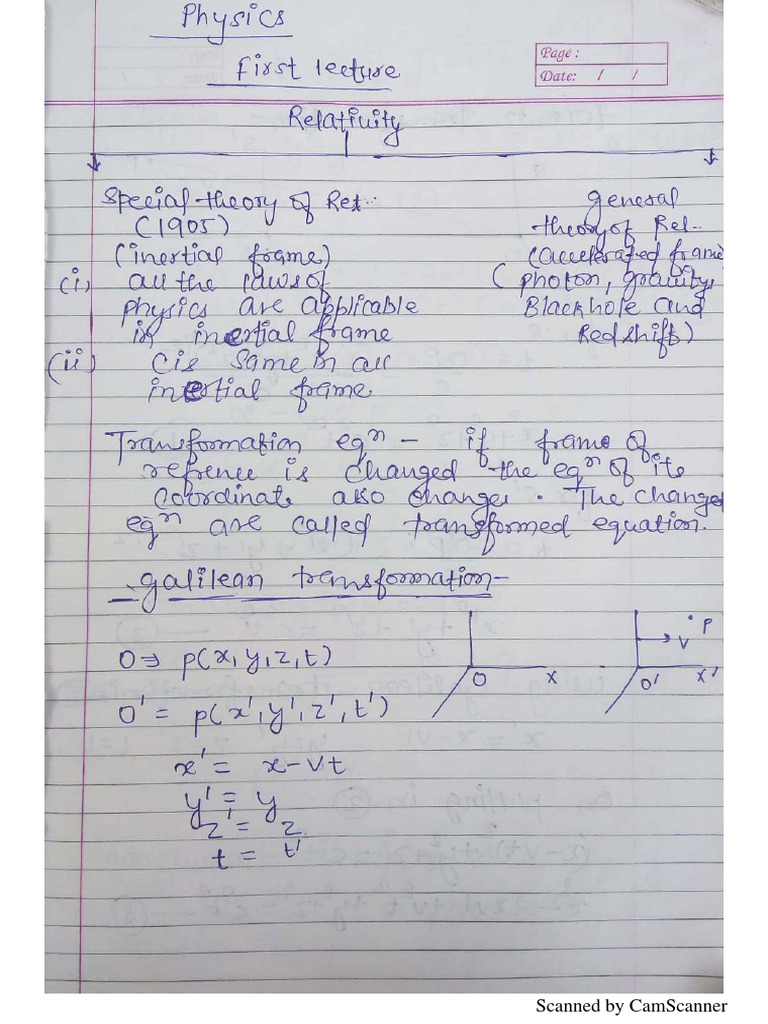 Physics
First lecture
Page :
Date: / /
Relativity
Special theory of Rel..
(1905)
(inertial frame)
(i) all the laws of
physics are applicable
in inertial frame
(ii) C is same in all
inertial frame
general
theory of Rel..
(accelerated frame
( photon, gravity,
Blackhole and
Redshift)
Transformation eqⁿ – if frame of
refrence is changed the eqⁿ of its
coordinate also changes. The changed
eqⁿ are called transformed equation.
galilean transformation–
O ⇒ p(x, y, z, t)
O' = p(x', y', z', t')
x' = x – v.t
y' = y
z' = z
t = t'
O x
P
v
O' x'
Scanned by CamScanner